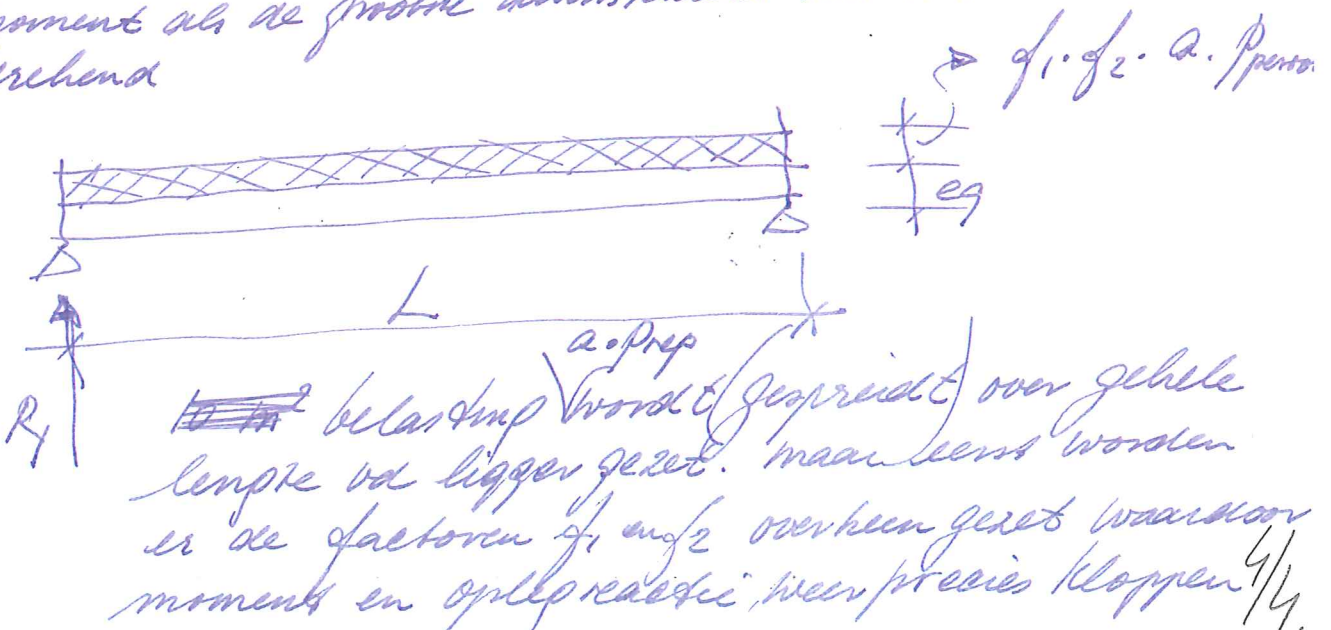 moment als de grootste
f1. f2. a. Ppers.
eg
L
a. Prep
belasting wordt (gespreidt) over gehele
R
lengte vd ligger gezet. maar eerst worden
er de factoren f1 en f2 overheen gezet waardoor
moment en oplegreactie weer precies kloppen
4/4.